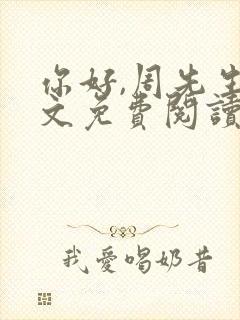 你好,周先生
文免費閱讀
我愛喝奶昔